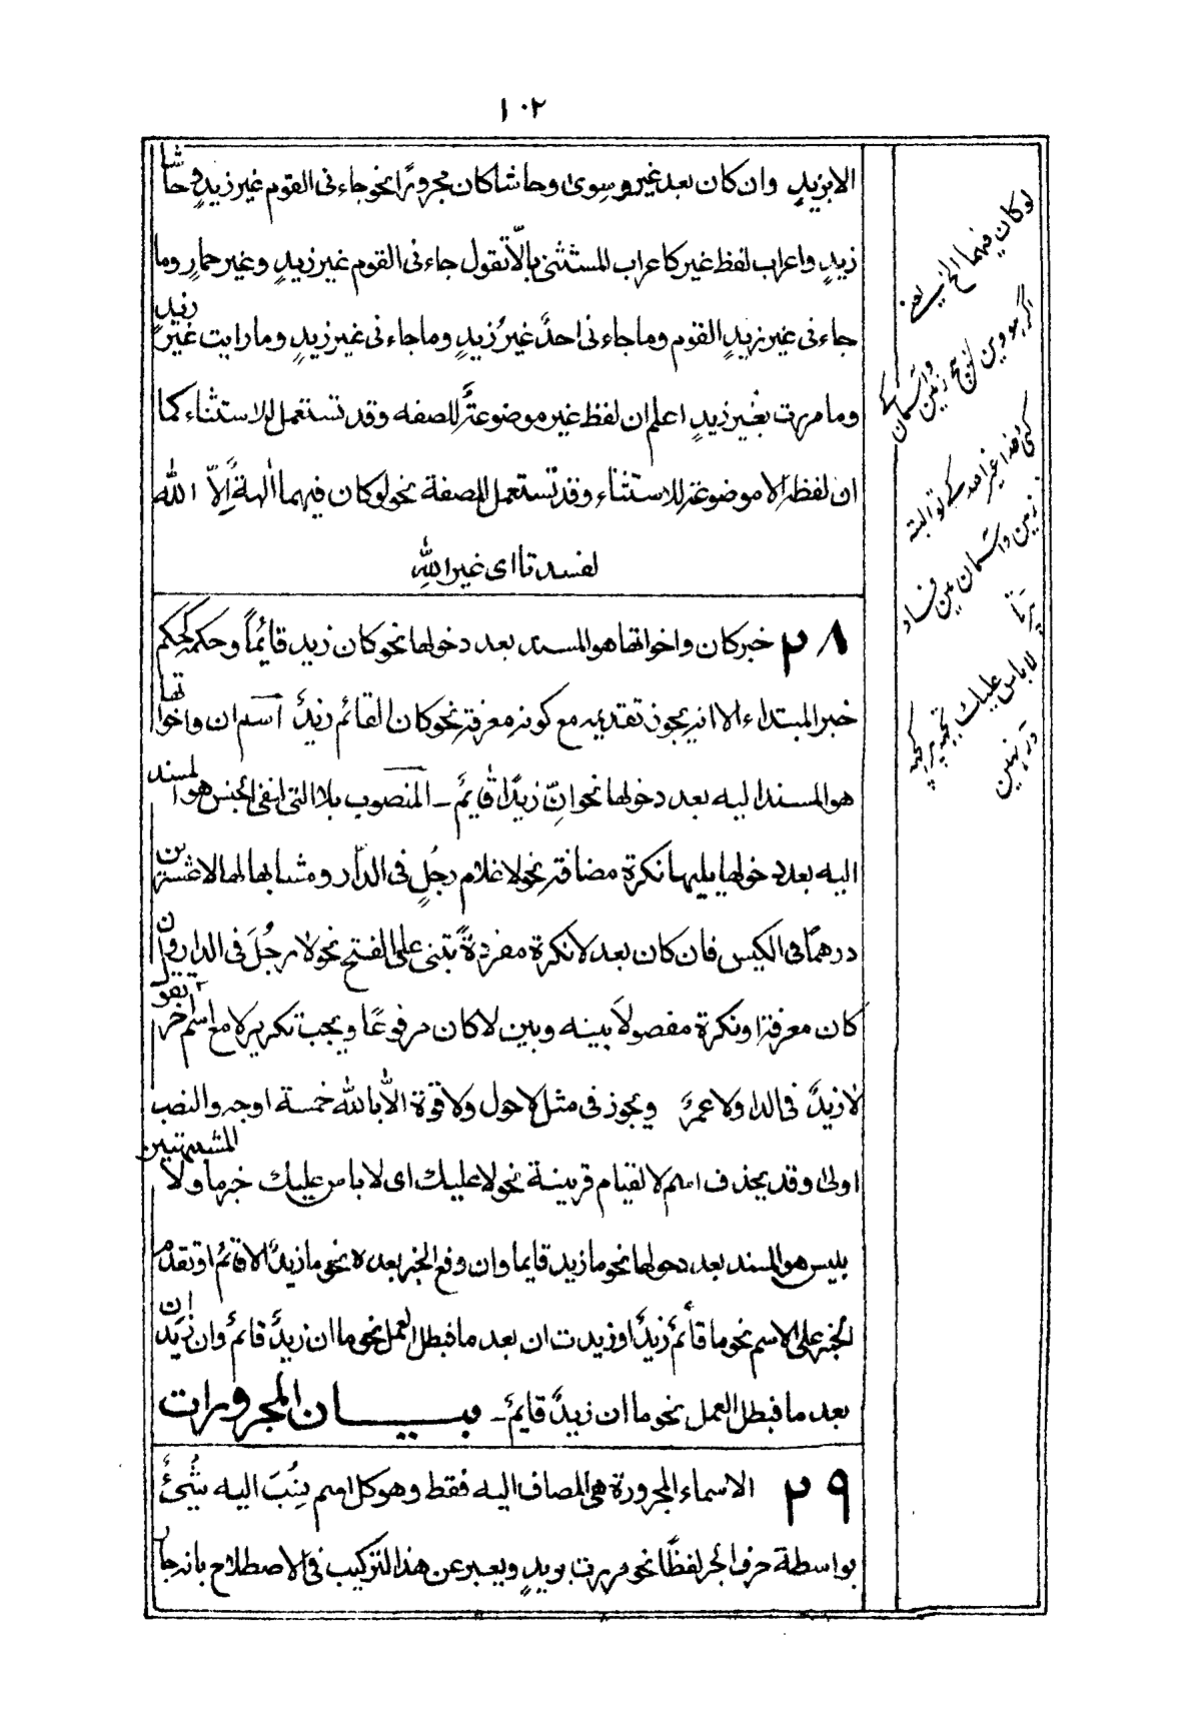 ١٠٢
الا بزيدٍ وان كان بعد غير وسوى وحاشا كان مجرورًا نحو جاءنى القوم غير زيدٍ وحاشا
زيدٍ واعراب لفظ غير كاعراب المستثنى بالّا تقول جاءنى القوم غير زيدٍ وغير حمارٍ وما
جاءنى غير زيدٍ القوم وما جاءنى احدٌ غيرُ زيدٍ وما جاءنى غير زيدٍ وما رايت غير زيدٍ
وما مررت بغير زيدٍ اعلم ان لفظ غير موضوعةٌ للصفه وقد تستعمل للاستثناء كما
ان لفظه الا موضوعة للاستثناء وقد تستعمل للصفة نحو لو كان فيهما الهةٌ الّا الله
لفسدتا اى غير اللهِ
٢٨ خبر كان واخواتها هو المسند بعد دخولها نحو كان زيد قائمًا وحكمه كحكم
خبر المبتداء الا انه يجوز تقديمه مع كونه معرفة نحو كان القائم زيدٌ اسم ان واخواتها
هو المسند اليه بعد دخولها نحو انّ زيدًا قايمٌ ـ المنصوب بلا التى لنفى الجنس هو المسند
اليه بعد دخولها يليها نكرة مضافة نحو لا غلام رجلٍ فى الدار ومشابها لها لا عشرين
درهمًا فى الكيس فان كان بعد لا نكرة مفردةً تبنى على الفتح نحو لا رجُلَ فى الدار وان
كان معرفة او نكرة مفصولاً بينه وبين لا كان مرفوعًا ويجب تكرير لا مع اسم آخر تقول
لا زيدٌ فى الدا ولا عمرٌ ويجوز فى مثل لا حول ولا قوة الا بالله خمسة اوجه والنصب
اولى وقد يحذف اسم لا لقيام قرينة نحو لا عليك اى لا باس عليك خبر ما ولا المشبهتين
بليس هو المسند بعد دخولها نحو ما زيد قايما وان وقع الخبر بعد الا نحو ما زيدٌ الا قائمٌ او تقدم
الخبر على الاسم نحو ما قائمٌ زيدٌ او زيدت ان بعد ما فبطل العمل نحو ما ان زيدٌ قائمٌ وان زيدت ان
بعد ما فبطل العمل نحو ما ان زيدٌ قايمٌ ـ بيـــان المجرورات
٢٩ الاسماء المجرورة هى المضاف اليه فقط وهو كل اسم نُسِبَ اليه شئٌ
بواسطة حرف الجر لفظًا نحو مررت بزيدٍ ويعبر عن هذا التركيب فى الاصطلاح بانه جار
لو كان فيهما الخ یعنے
اگر ہوویں بیچ زمین و آسمان کے
کئی خدا غیر اللہ کے تو البتہ
زمین و آسمان میں فساد
پڑتا
لا باس علیك